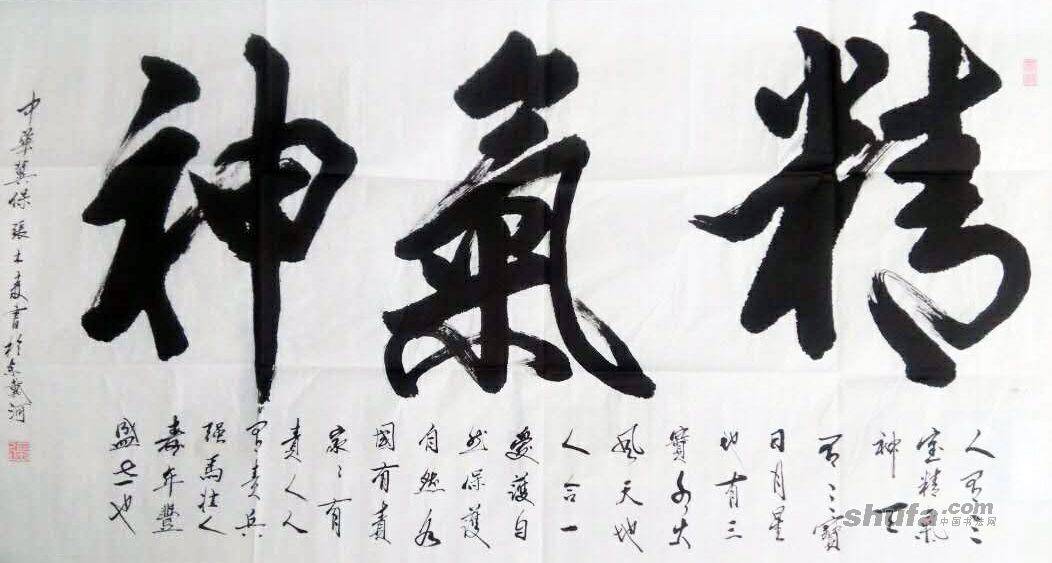 精氣神
人有三
宝精氣
神天
有三寶
日月星
地有三
寶水火
風天地
人合一
愛護自
然保護
自然為
國有責
家〻有
責人人
有責兵
强馬壮人
壽年豐
盛世也
中華冀保張書於戴河
shufa.com
中国书法网